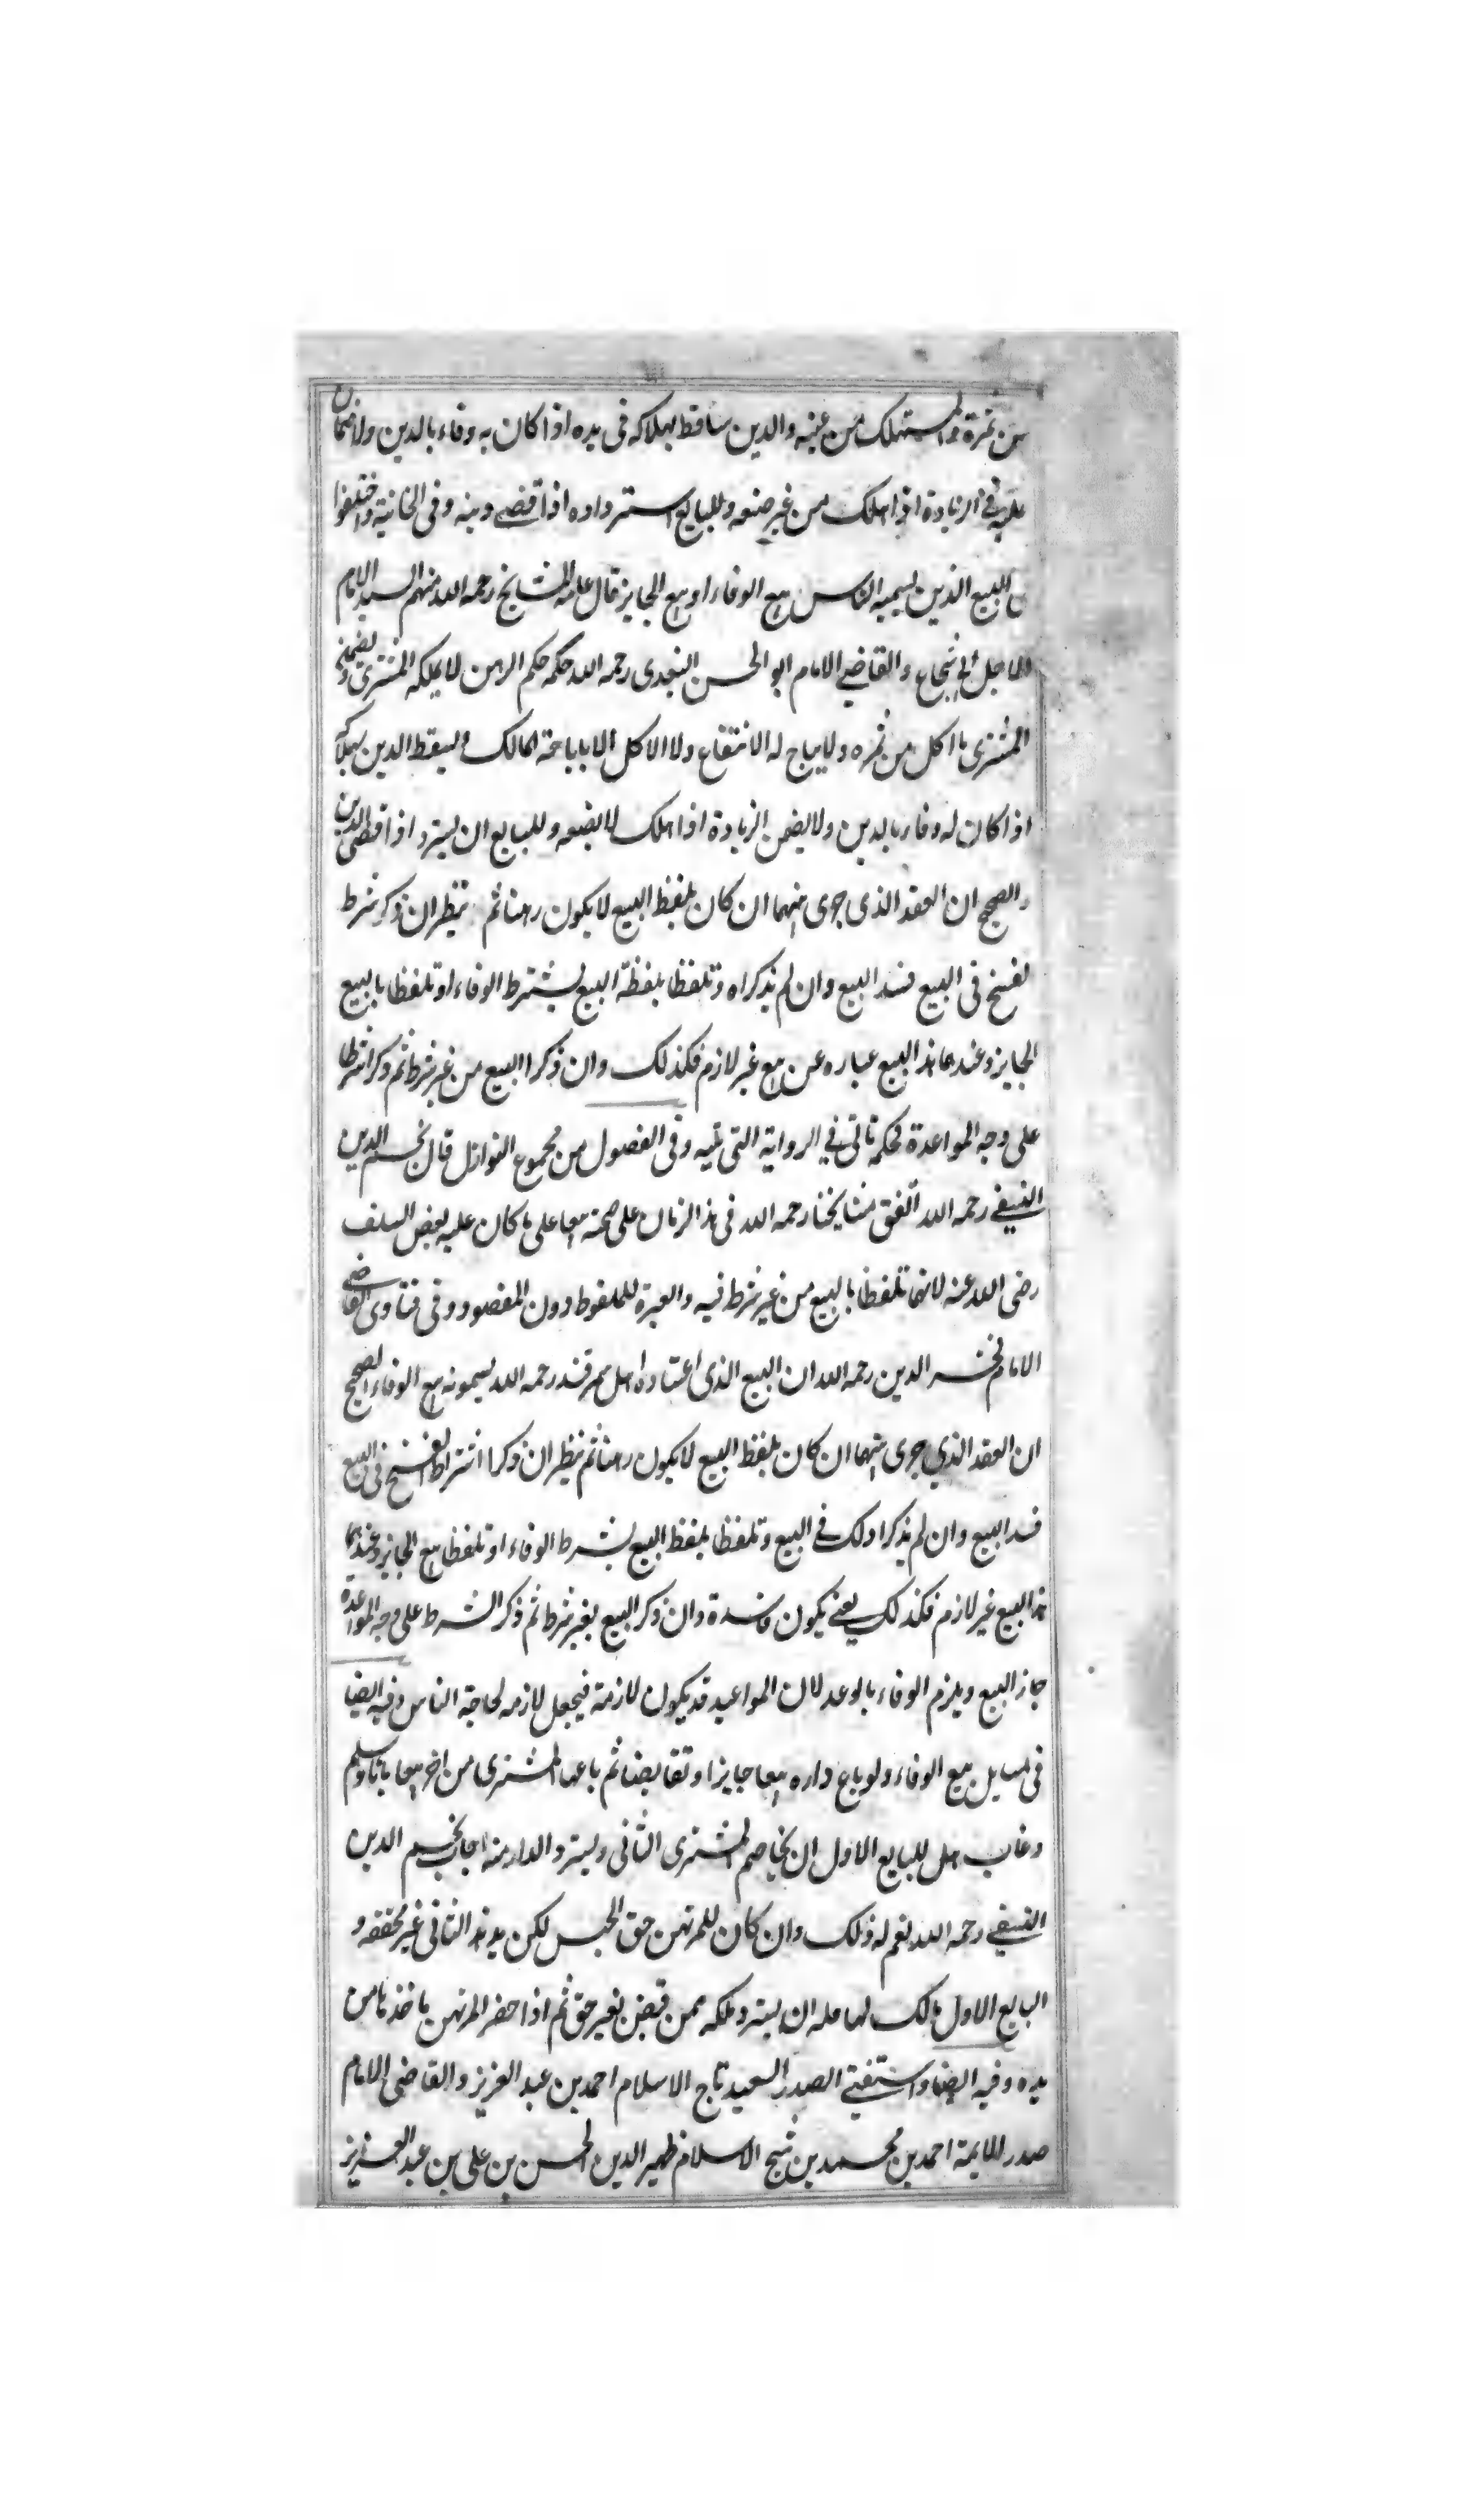 من ثمرة واستهلك من عينه والدين ساقط بهلاكه فى يده اذا كان به وفاء بالدين ولا ضمان
عليه فى الزيادة اذا هلك من غير صنعه وللبايع استرداده اذا قضى دينه وفى الخانية واختلفوا
فى البيع الذين يسميه الناس بيع الوفاء او بيع الجايز قال عامة المشايخ رحمه الله منهم السيد الامام
الاجل ابى شجاع والقاضى الامام ابو الحسن السغدى رحمه الله حكمه حكم الرهن لا يملكه المشترى ويضمن
المشترى ما اكل من ثمره ولا يباح له الانتفاع ولا الاكل الا باباحة المالك ويسقط الدين بهلاكه
اذا كان له وفاء بالدين ولا يضمن الزيادة اذا هلك لا بصنعه وللبايع ان يسترد اذا قضى الدين
والصحيح ان العقد الذى جرى بينهما ان كان بلفظ البيع لا يكون رهنا ثم ينظر ان ذكر شرط
لفسخ فى البيع فسد البيع وان لم يذكراه وتلفظا بلفظة البيع بشرط الوفاء او تلفظا بالبيع
الجايز وعندهما هذا البيع عباره عن بيع غير لازم فكذلك وان ذكرا البيع من غير شرط ثم ذكرا شرطا
على وجه المواعدة فحكمه تاتى فى الرواية التى تليه وفى الفصول من مجموع النوازل قال نجم الدين
النسفى رحمه الله اتفق مشايخنا رحمه الله فى هذا الزمان على صحته بيعا على ما كان عليه بعض السلف
رضى الله عنه لانهما تلفظا بالبيع من غير شرط فيه والعبرة للملفوظ دون المقصود وفى فتاوى القاضى
الامام فخر الدين رحمه الله ان البيع الذى اعتاده اهل سمرقند رحمه الله يسمونه بيع الوفاء الصحيح
ان العقد الذي جرى بينهما ان كان بلفظ البيع لا يكون رهنا ثم ينظر ان ذكرا اشتراط الفسخ فى البيع
فسد البيع وان لم يذكرا ذلك فى البيع وتلفظا بلفظ البيع بشرط الوفاء او تلفظا بيع الجايز وعندهما
هذا البيع غير لازم فكذلك يعنى يكون فاسدة وان ذكر البيع بغير شرط ثم ذكر الشرط على وجه المواعدة
جاز البيع ويلزم الوفاء بالوعد لان المواعيد قد يكون لازمة فيجعل لازمه لحاجة الناس وفيه ايضا
فى مسايل بيع الوفاء ولو باع داره بيعا جايزا وتقابضا ثم باعها المشترى من اخر بيعا باتا وسلم
وغاب هل للبايع الاول ان يخاصم المشترى الثانى ويسترد الدار منه اجاب نجم الدين
النسفى رحمه الله نعم له ذلك وان كان للمرتهن حق الحبس لكن يد هذا الثانى غير محققه و
البايع الاول مالك لها فله ان يسترد ملكه ممن قبض بغير حق ثم اذا حضر المرتهن ياخذها من
يده وفيه ايضا واستفتى الصدر السعيد تاج الاسلام احمد بن عبد العزيز والقاضى الامام
صدر الايمة احمد بن محمد بن شيخ الاسلام ظهير الدين الحسن بن على بن عبد العزيز